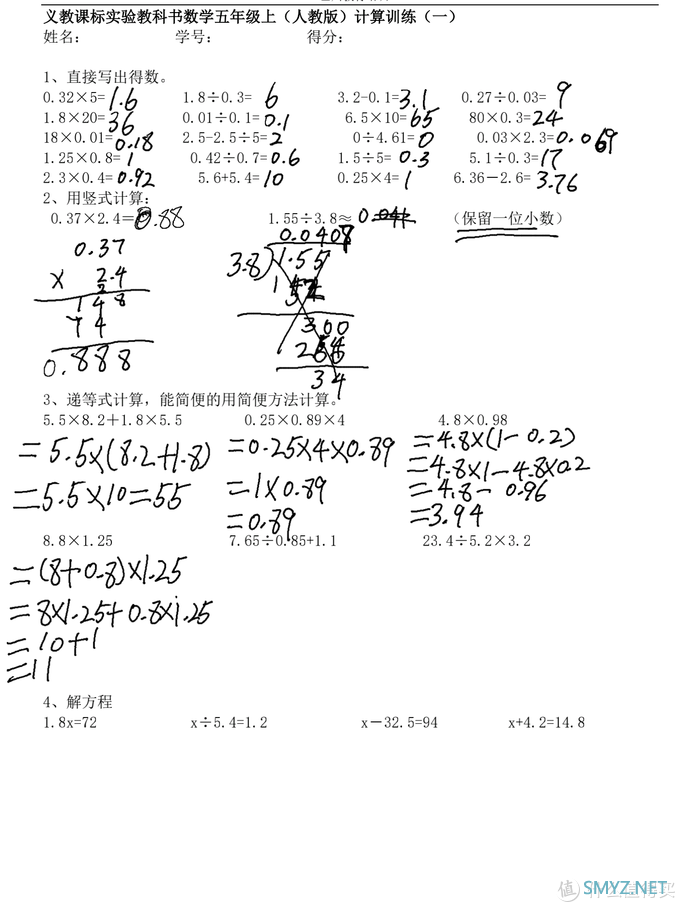 义教课标实验教科书数学五年级上（人教版）计算训练（一）
姓名： 学号： 得分：
1、直接写出得数。
0.32×5=1.6 1.8÷0.3= 6 3.2-0.1=3.1 0.27÷0.03= 9
1.8×20=36 0.01÷0.1=0.1 6.5×10=65 80×0.3=24
18×0.01=0.18 2.5-2.5÷5=2 0÷4.61=0 0.03×2.3=0.069
1.25×0.8=1 0.42÷0.7=0.6 1.5÷5= 0.3 5.1÷0.3=17
2.3×0.4=0.92 5.6+5.4=10 0.25×4=1 6.36－2.6= 3.76
2、用竖式计算：
0.37×2.4=0.88 1.55÷3.8≈ 0.04 （保留一位小数）
0.37 0.0408
× 2.4 3.8)1.55
148
74 300
0.888
34
3、递等式计算，能简便的用简便方法计算。
5.5×8.2＋1.8×5.5 0.25×0.89×4 4.8×0.98
=5.5×(8.2+1.8) =0.25×4×0.89 =4.8×(1-0.2)
=5.5×10=55 =1×0.89 =4.8×1-4.8×0.2
=0.89 =4.8- 0.96
=3.94
8.8×1.25 7.65÷0.85+1.1 23.4÷5.2×3.2
=(8+0.8)×1.25
=8×1.25+0.8×1.25
=10+1
=11
4、解方程
1.8x=72 x÷5.4=1.2 x－32.5=94 x+4.2=14.8
值 什么值得买
SMYZ.NET